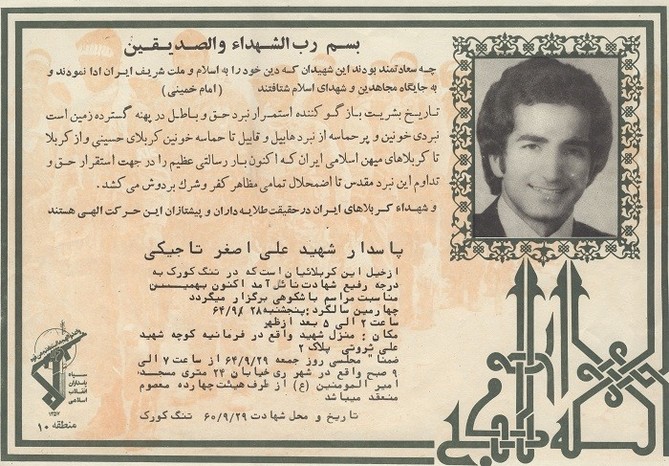 بسم رب الشهداء والصدیقین
چه سعادتمند بودند این شهیدان که دین خود را به اسلام و ملت شریف ایران ادا نمودند و
به جایگاه مجاهدین و شهدای اسلام شتافتند (امام خمینی)
تاریخ بشریت بازگو کننده استمرار نبرد حق و باطل در پهنه گسترده زمین است
نبردی خونین و پرحماسه از نبرد هابیل و قابیل تا حماسه خونین کربلای حسینی و از کربلا
تا کربلاهای میهن اسلامی ایران که اکنون بار رسالتی عظیم را در جهت استقرار حق و
تداوم این نبرد مقدس تا اضمحلال تمامی مظاهر کفر و شرك بردوش می کشد.
و شهداء کربلاهای ایران در حقیقت طلایه داران و پیشتازان این حرکت الهی هستند
پاسدار شهید علی اصغر تاجیکی
ازخیل این کربلائیان است که در تنگ کورک به
درجه رفیع شهادت نائل آمد اکنون بهمین
مناسبت مراسم باشکوهی برگزار میگردد
چهارمین سالگرد: پنجشنبه ۶۴/۹/۲۸
ساعت ۲ الی ۵ بعد ازظهر
مکان: منزل شهید واقع در فرمانیه کوچه شهید
علی ثروتی پلاک ۲
ضمنا" مجلسی روز جمعه ۶۴/۹/۲۹ از ساعت ۷ الی
۹ صبح واقع در شهر ری خیابان ۲۴ متری مسجد
امیر المومنین (ع) از طرف هیئت چهارده معصوم
منعقد میباشد
تاریخ و محل شهادت ۶۰/۹/۲۹ تنگ کورک
سپاه
پاسداران
انقلاب
اسلامی
۱۳۵۷
منطقه ۱۰